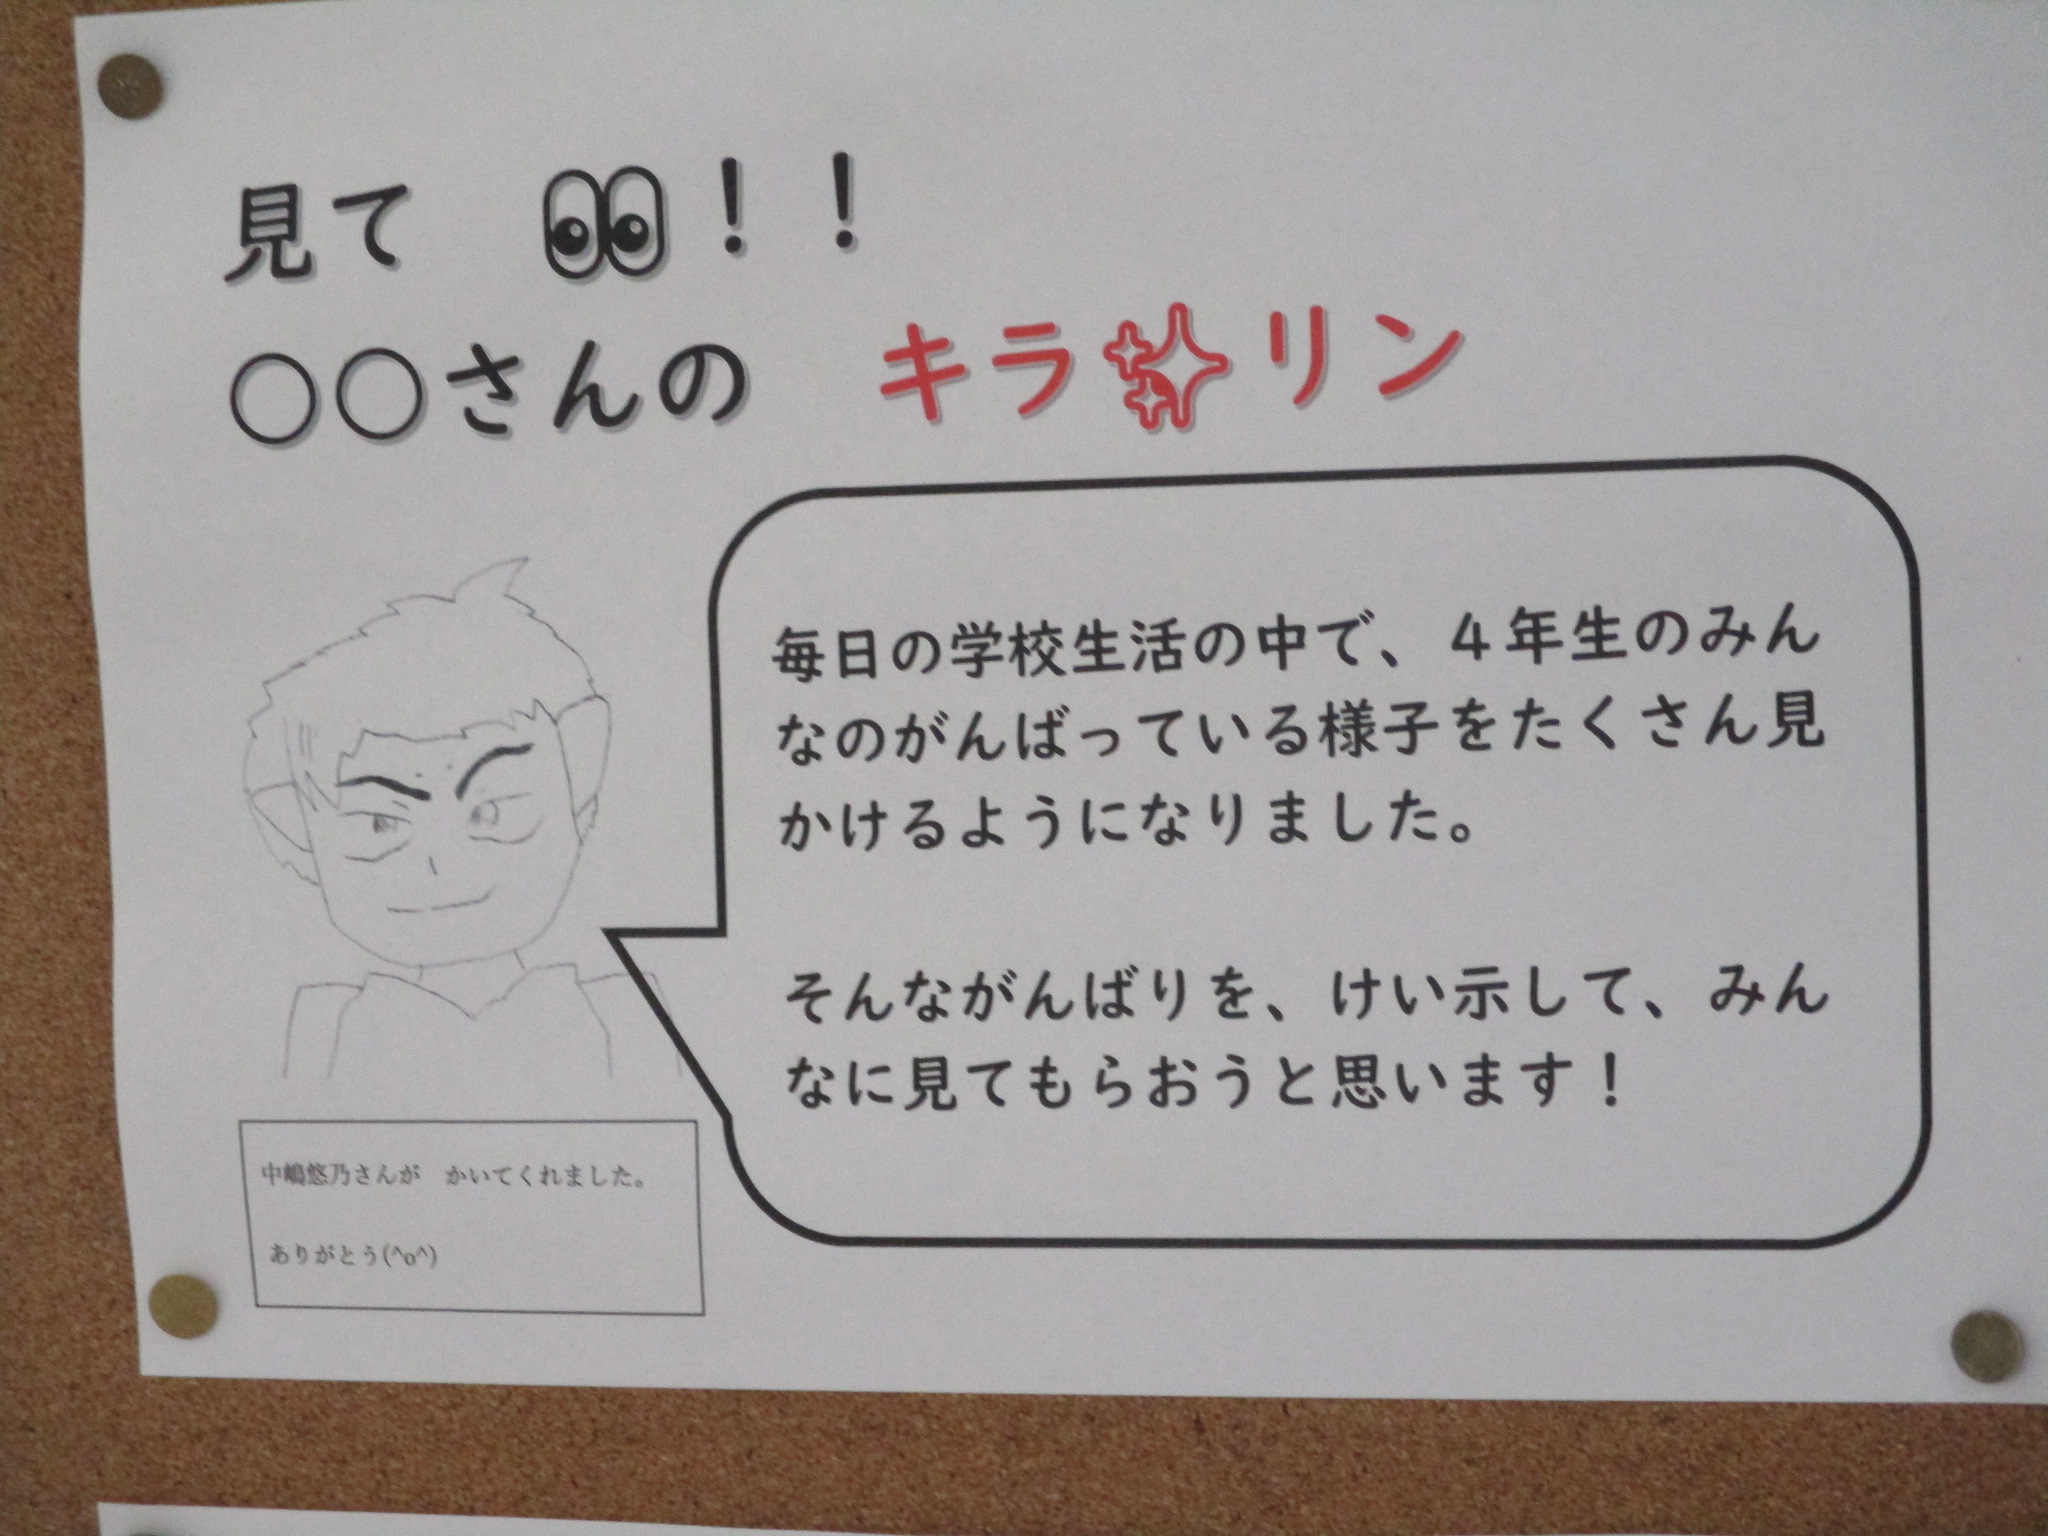 見て　👀！！
○○さんの　キラ✨リン
毎日の学校生活の中で、４年生のみん
なのがんばっている様子をたくさん見
かけるようになりました。
そんながんばりを、けい示して、みん
なに見てもらおうと思います！
中嶋悠乃さんが　かいてくれました。
ありがとう(^o^)